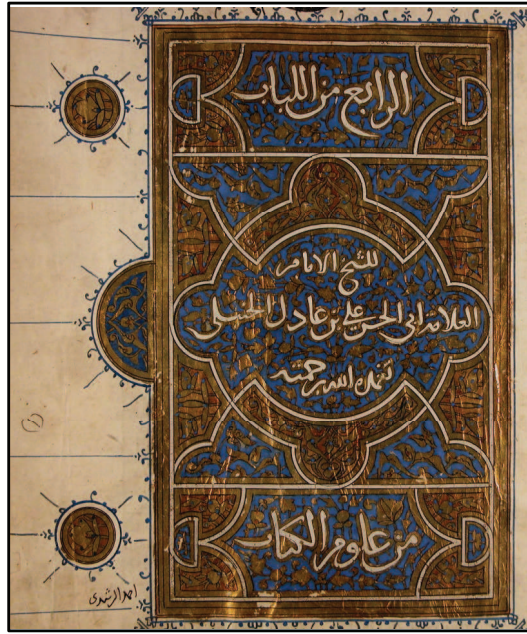 الرابع من اللباب
للشيخ الامام
العلامة ابي الحسن علي بن عادل الحنبلي
تغمده الله برحمته
من علوم الكتاب
احمد الرشيدى